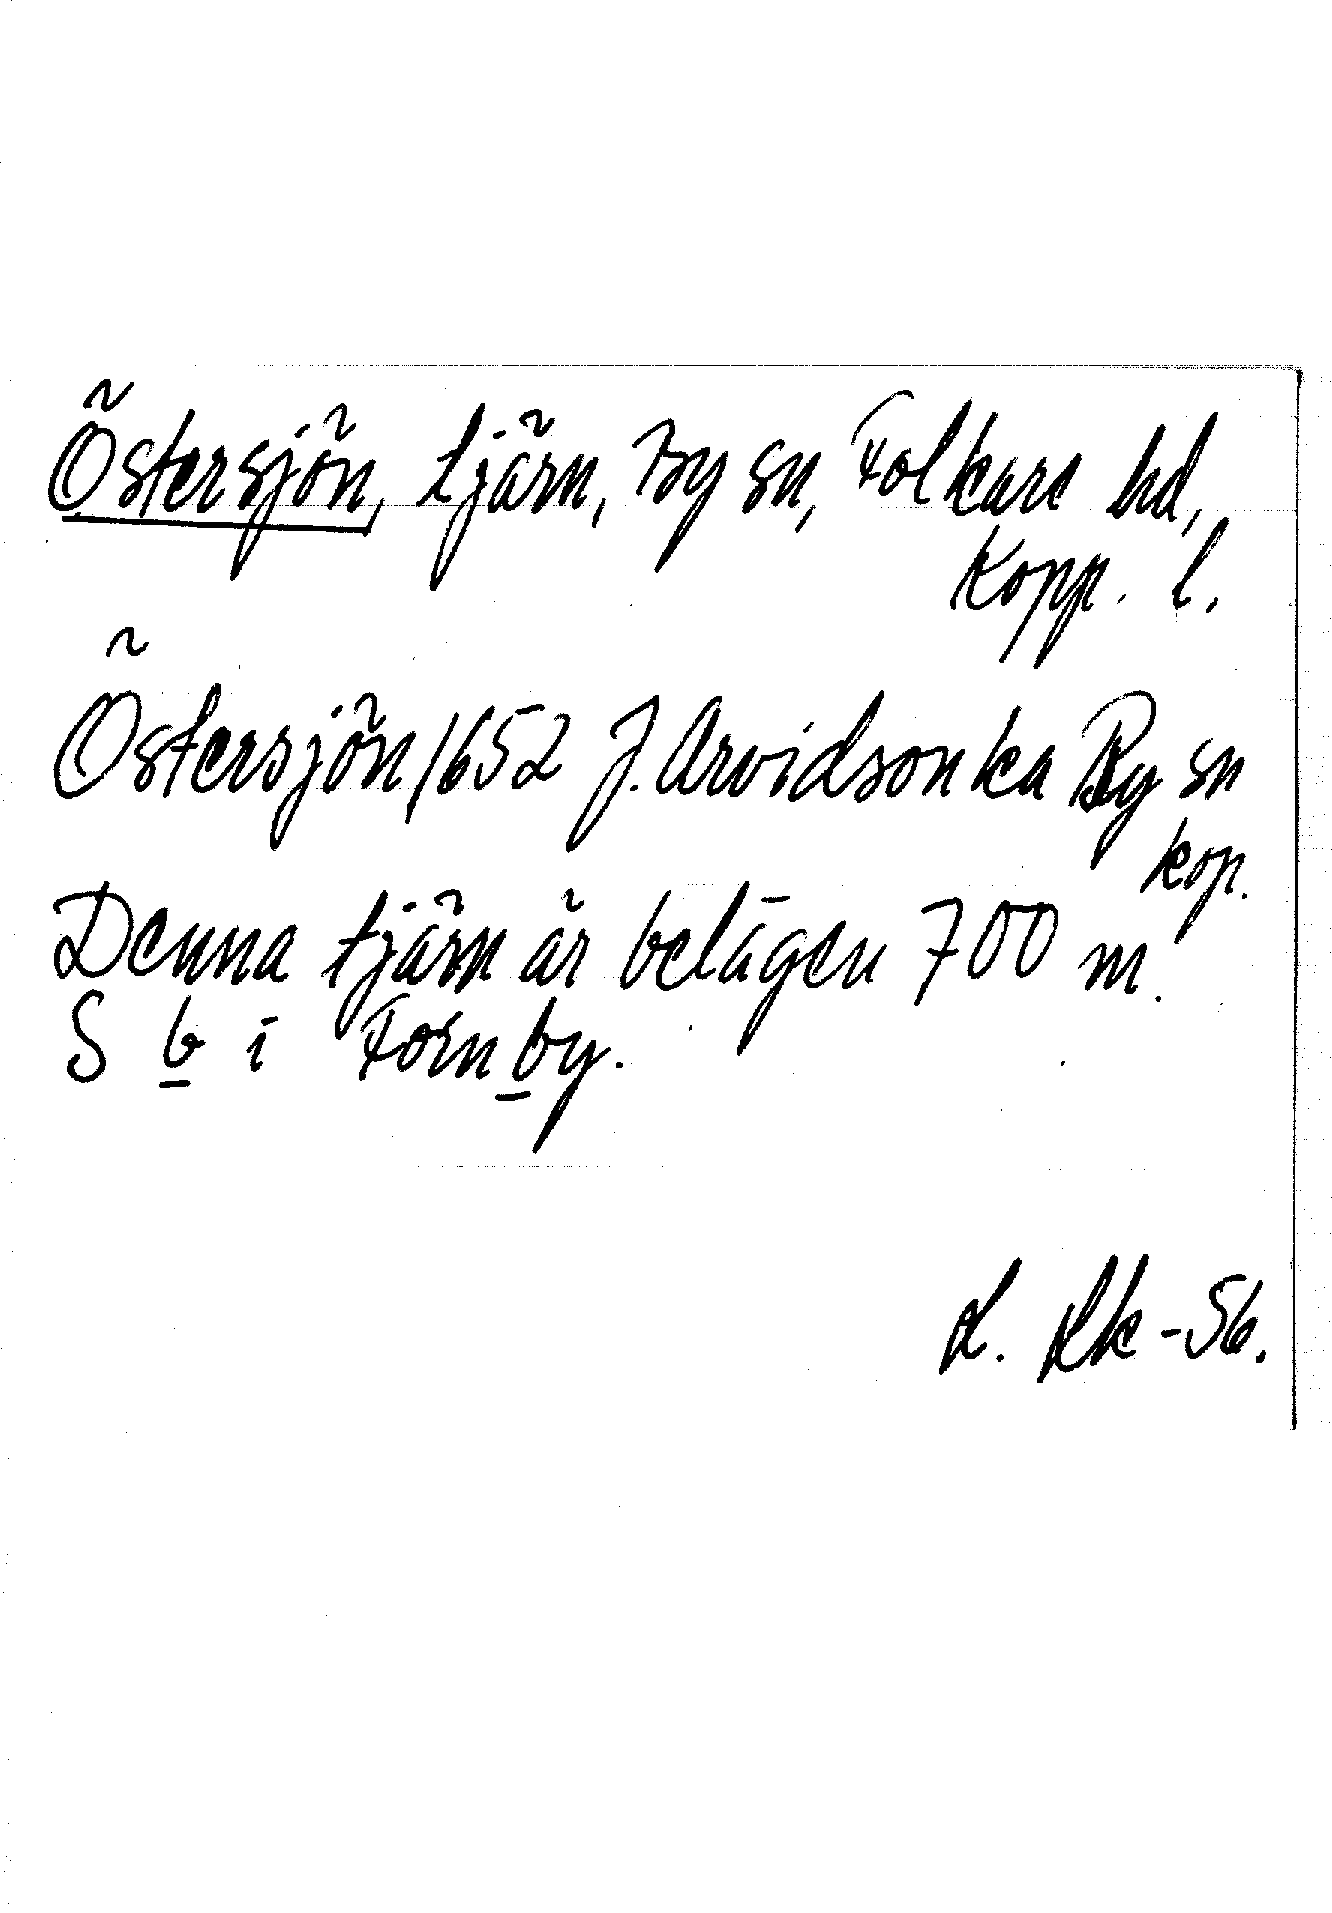 Östersjön, tjärn, By sn, Folkare hd,
Kopp. l.
Östersjön 1652 J. Arvidson ka By sn
kop.
Denna tjärn är belägen 700 m.
S b i Fornby.
L. Rk -56.